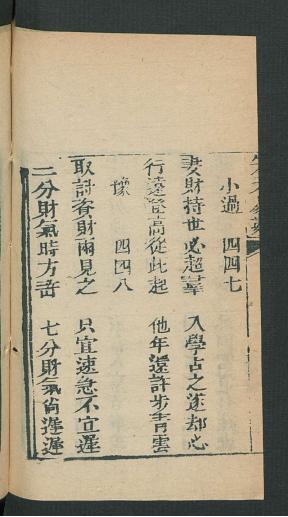 小過　四四七
妻財持世必超羣　入學占之遂却心
行遠登高從此起　他年還許步青雲
豫　四四八
取討看財兩見之　只宜速急不宜遲
二分財氣時方至　七分財氣尚遲遲